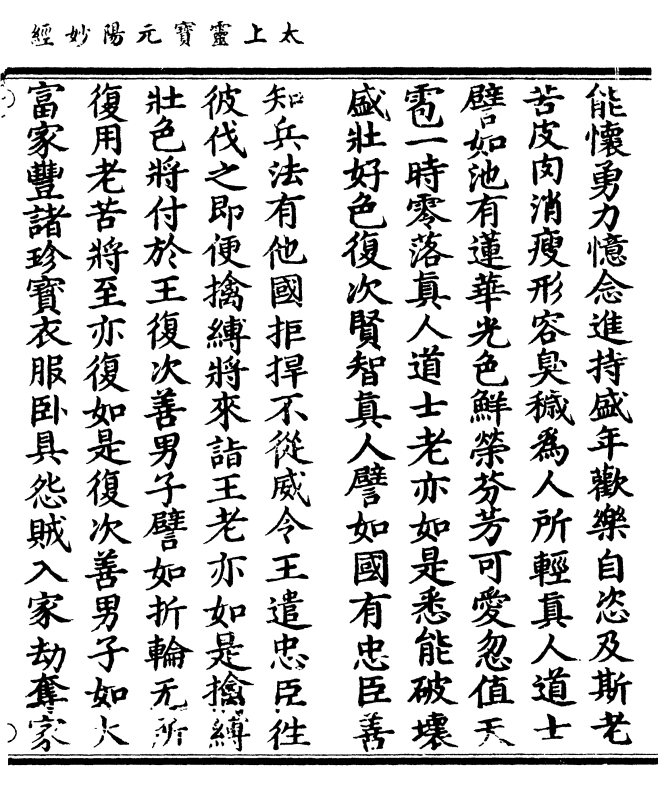 太上靈寶元陽妙經
能懷勇力憶念進持盛年歡樂自恣及斯老
苦皮肉消瘦形容臭穢為人所輕真人道士
譬如池有蓮華光色鮮榮芬芳可愛忽值天
雹一時零落真人道士老亦如是悉能破壞
盛壯好色復次賢智真人譬如國有忠臣善
知兵法有他國拒捍不從威令王遣忠臣往
彼伐之即便擒縛將來詣王老亦如是擒縛
壯色將付於王復次善男子譬如折輪无所
復用老苦將至亦復如是復次善男子如大
富家豐諸珍寶衣服臥具怨賊入家劫奪家